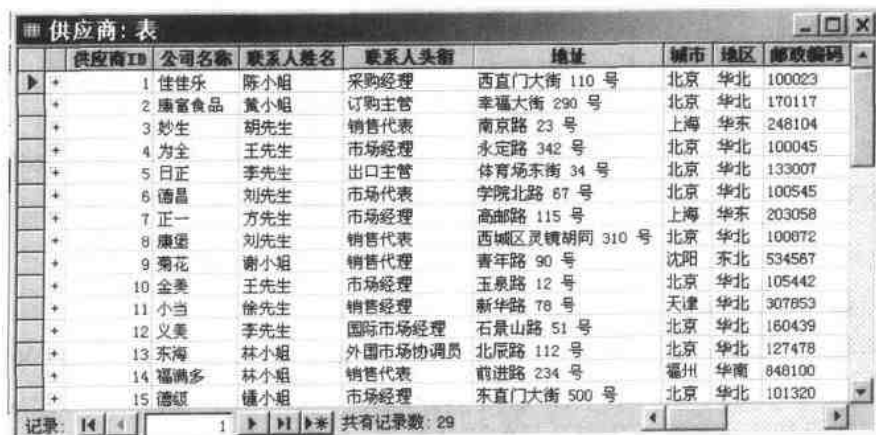 供应商: 表
供应商ID 公司名称 联系人姓名 联系人头衔 地址 城市 地区 邮政编码
+ 1 佳佳乐 陈小姐 采购经理 西直门大街 110 号 北京 华北 100023
+ 2 康富食品 黄小姐 订购主管 幸福大街 290 号 北京 华北 170117
+ 3 妙生 胡先生 销售代表 南京路 23 号 上海 华东 248104
+ 4 为全 王先生 市场经理 永定路 342 号 北京 华北 100045
+ 5 日正 李先生 出口主管 体育场东街 34 号 北京 华北 133007
+ 6 德昌 刘先生 市场代表 学院北路 67 号 北京 华北 100545
+ 7 正一 方先生 市场经理 高邮路 115 号 上海 华东 203058
+ 8 康堡 刘先生 销售代表 西城区灵镜胡同 310 号 北京 华北 100872
+ 9 菊花 谢小姐 销售代理 青年路 90 号 沈阳 东北 534567
+ 10 金美 王先生 市场经理 玉泉路 12 号 北京 华北 105442
+ 11 小当 徐先生 销售经理 新华路 78 号 天津 华北 307853
+ 12 义美 李先生 国际市场经理 石景山路 51 号 北京 华北 160439
+ 13 东海 林小姐 外国市场协调员 北辰路 112 号 北京 华北 127478
+ 14 福满多 林小姐 销售代表 前进路 234 号 福州 华南 848100
+ 15 德级 锺小姐 市场经理 东直门大街 500 号 北京 华北 101320
记录: 1 共有记录数: 29